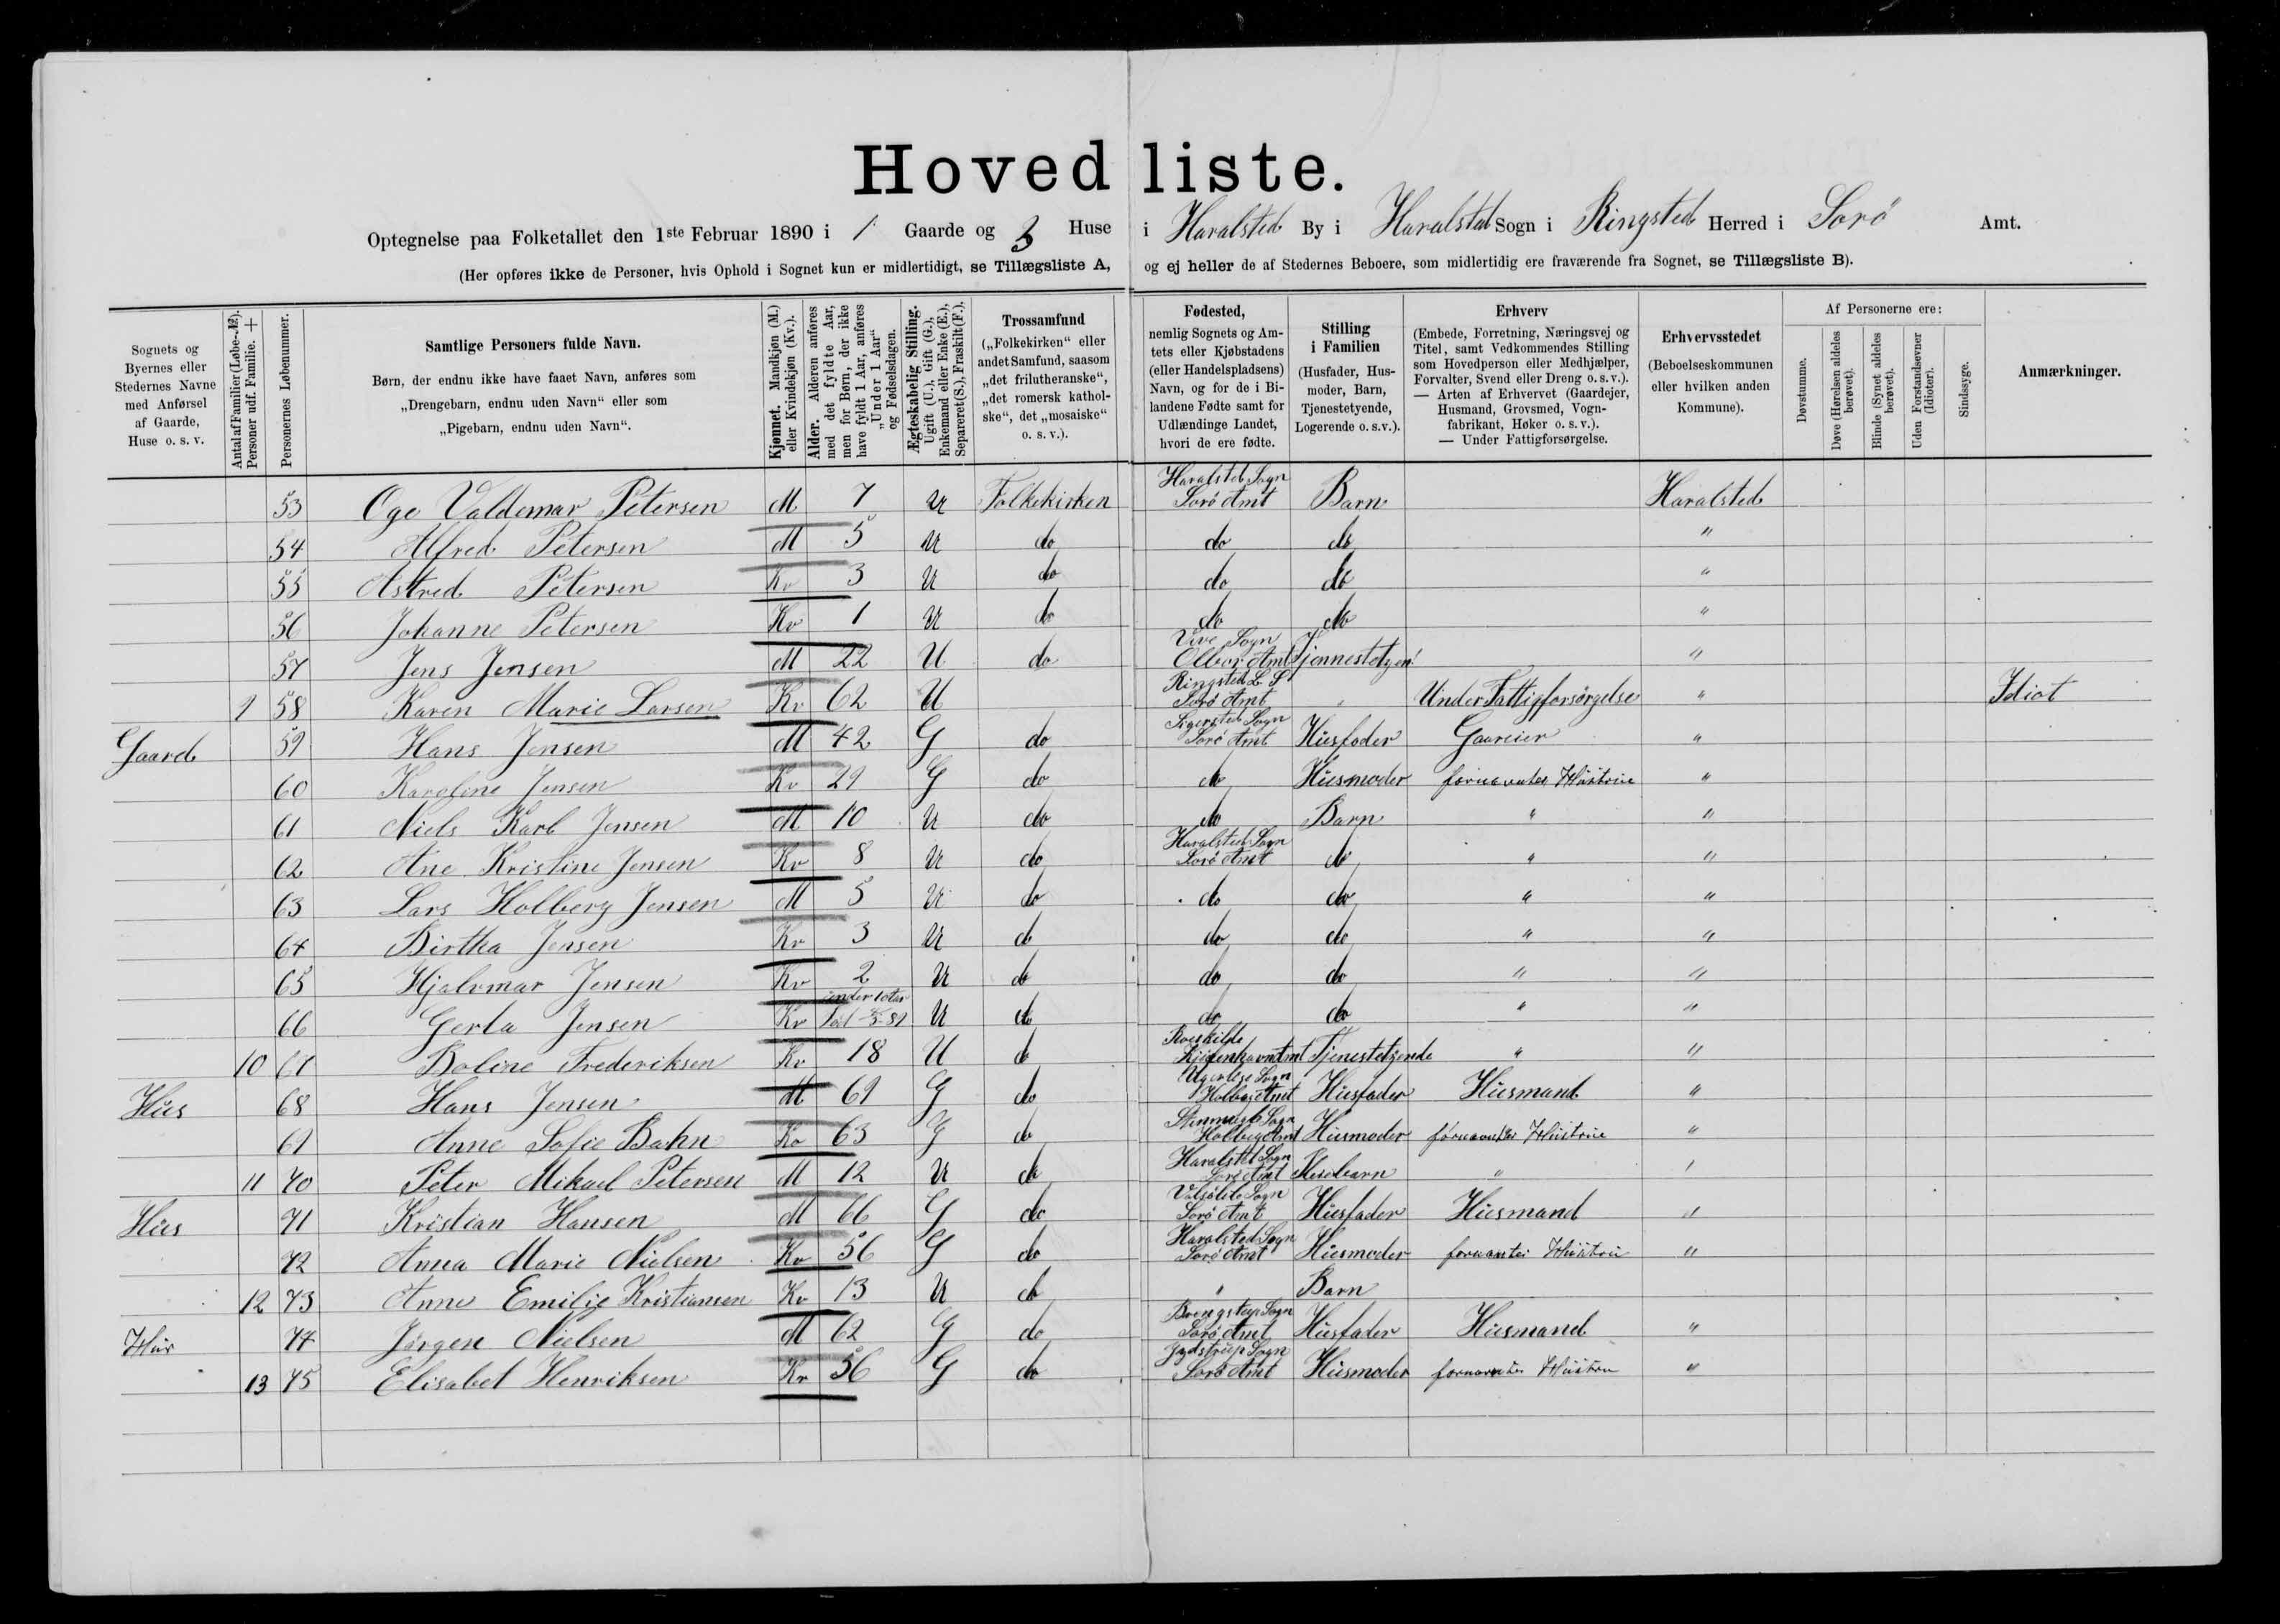 Hovedliste.
Optegnelse paa Folketallet den 1ste Februar 1890 i 1 Gaarde og 3 Huse i Haralsted By i Haralsted Sogn i Ringsted Herred i Sorö Amt.
(Her opføres ikke de Personer, hvis Ophold i Sognet kun er midlertidigt, se Tillægsliste A, og ej heller de af Stedernes Beboere, som midlertidig ere fraværende fra Sognet, se Tillægsliste B).
Sognets og Byernes eller Stedernes Navne med Anførsel af Gaarde, Huse o. s. v.
Antal af Familier (Løbe-№). Personer udf. Familie. +
Personernes Løbenummer.
Samtlige Personers fulde Navn.
Børn, der endnu ikke have faaet Navn, anføres som „Drengebarn, endnu uden Navn“ eller som „Pigebarn, endnu uden Navn“.
Kjønnet. Mandkjøn (M.) eller Kvindekjøn (Kv.).
Alder. Alderen anføres med det fyldte Aar, men for Børn, der ikke have fyldt 1 Aar, anføres „Under 1 Aar“ og Fødselsdagen.
Ægteskabelig Stilling. Ugift (U.), Gift (G.), Enkemand eller Enke (E.), Separeret (S.), Fraskilt (F.).
Trossamfund („Folkekirken“ eller andet Samfund, saasom „det frilutheranske“, „det romersk katholske“, det „mosaiske“ o. s. v.).
Fødested, nemlig Sognets og Amtets eller Kjøbstadens (eller Handelspladsens) Navn, og for de i Bilandene Fødte samt for Udlændinge Landet, hvori de ere fødte.
Stilling i Familien (Husfader, Husmoder, Barn, Tjenestetyende, Logerende o. s. v.).
Erhverv (Embede, Forretning, Næringsvej og Titel, samt Vedkommendes Stilling som Hovedperson eller Medhjælper, Forvalter, Svend eller Dreng o. s. v.). — Arten af Erhvervet (Gaardejer, Husmand, Grovsmed, Vognfabrikant, Høker o. s. v.). — Under Fattigforsørgelse.
Erhvervsstedet (Beboelseskommunen eller hvilken anden Kommune).
Af Personerne ere:
Døvstumme.
Døve (Hørelsen aldeles berøvet).
Blinde (Synet aldeles berøvet).
Uden Forstandsevner (Idioter).
Sindssyge.
Anmærkninger.
53 Oge Valdemar Petersen M 7 U Folkekirken Haralsted Sogn Sorö Amt Barn Haralsted
54 Alfred Petersen M 5 U do do do "
55 Astred Petersen Kv 3 U do do do "
56 Johanne Petersen Kv 1 U do do do "
57 Jens Jensen M 22 U do Vive Sogn Olbor Amt "
58 Karen Marie Larsen Kv 62 U Ringsted L S Sorö Amt " Under Fattigforsörgelse " Idiot
Gaard 59 Hans Jensen M 42 G do Sigersted Sogn Sorö Amt Husfader Gaareier "
60 Karoline Jensen Kv 29 G do do Husmoder fornævntes Hüstrue "
61 Niels Karl Jensen M 10 U do do Barn " "
62 Ane Kristine Jensen Kv 8 U do Haralsted Sogn Sorö Amt do " "
63 Lars Holberg Jensen M 5 U do do do " "
64 Birtha Jensen Kv 3 U do do do " "
65 Hjalvmar Jensen Kv 2 U do do do " "
66 Gerta Jensen Kv under 1 Aar U do do do " "
10 67 Boline Frederiksen Kv 18 U do Roeskilde Tjenestetyende " "
Hüs 68 Hans Jensen M 69 G do Ugerløse Sogn Holbæj Amt Hüsfader Hüsmand "
69 Anne Sofie Bahn Kv 63 G do Hüsmoder fornævntes Hüstrue "
11 70 Peter Mikael Petersen M 12 U do Haralsted Sogn Sorö Amt Pleiebarn " "
Hüs 71 Kristian Hansen M 66 G do Valsölile Sogn Sorö Amt Hüsfader Hüsmand "
72 Anna Marie Nielsen Kv 56 G do Haralsted Sogn Sorö Amt Hüsmoder fornævntes Hüstrue "
12 73 Anne Emilie Kristiansen Kv 13 U do " Barn
Hüs 74 Jörgen Nielsen M 62 G do Brengstrup Sogn Sorö Amt Hüsfader Hüsmand "
13 75 Elisabet Henriksen Kv 56 G do Jydstrüp Sogn Sorö Amt Hüsmoder fornævntes Hüstrue "